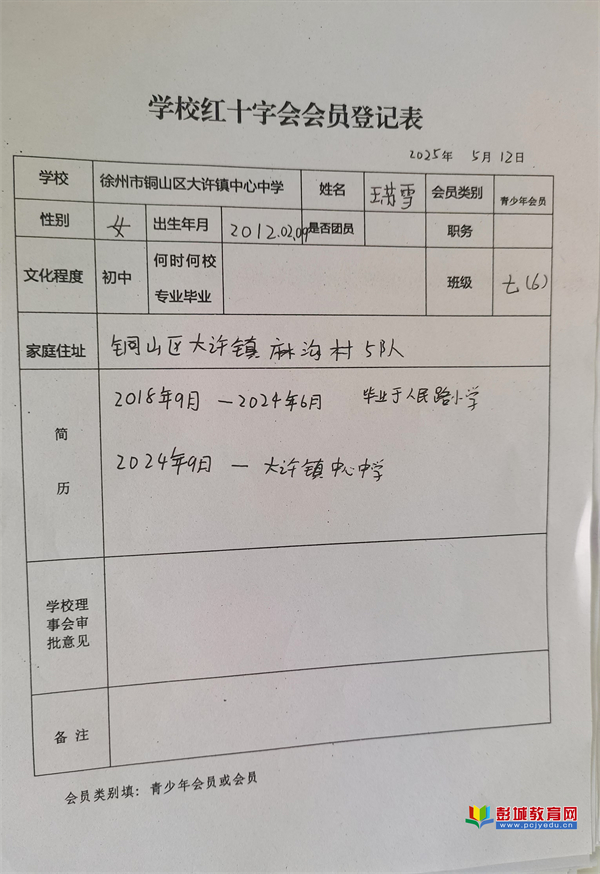 学校红十字会会员登记表
2025年 5月12日
学校 徐州市铜山区大许镇中心中学 姓名 雪 会员类别 青少年会员
性别 女 出生年月 2012.02.09 是否团员 职务
文化程度 初中 何时何校 班级 七(6)
专业毕业
家庭住址 铜山区大许镇麻沟村5队
2018年9月 — 2024年6月 毕业于人民路小学
简
2024年9日 — 大许镇中心中学
历
学校理
事会审
批意见
备注
会员类别填：青少年会员或会员
彭城教育网
www.pcjyedu.cn